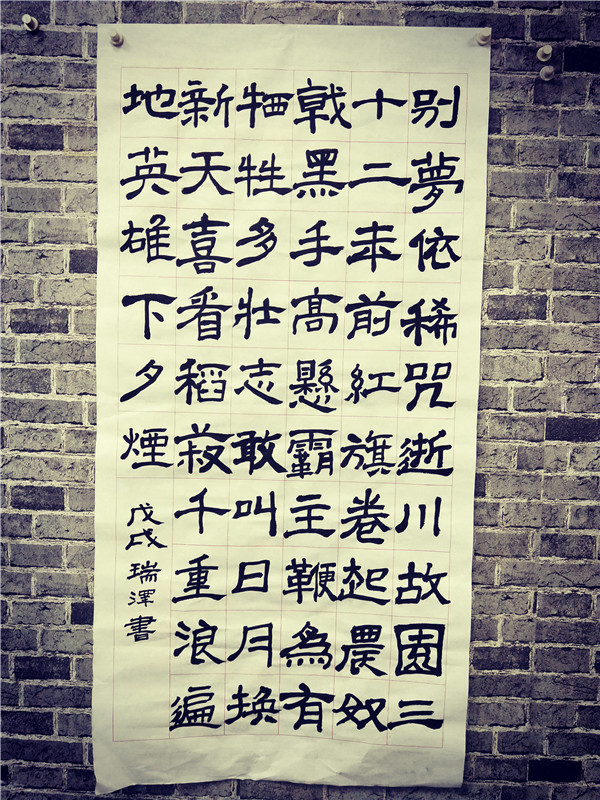 别夢依稀咒逝川故園三
十二年前紅旗卷起農奴
戟黑手高懸霸主鞭為有
牺牲多壮志敢叫日月换
新天喜看稻菽千重浪遍
地英雄下夕煙
戊戌瑞澤書